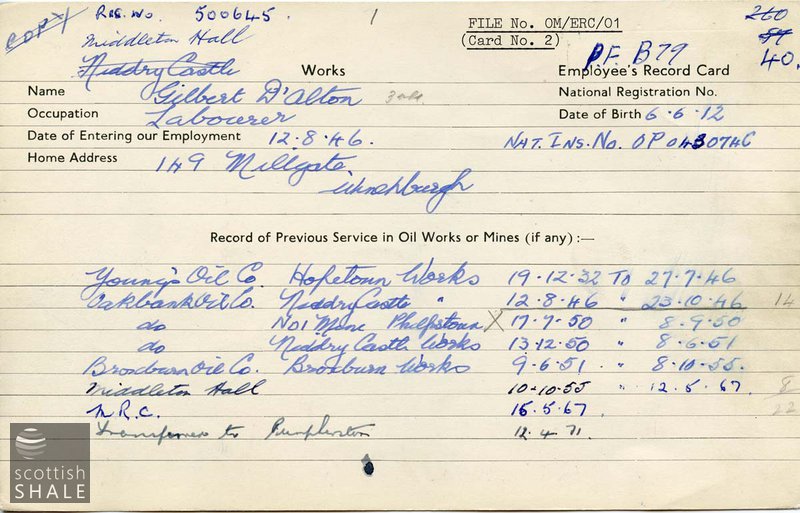 COPY
Reg. No. 500645.
1
FILE No. OM/ERC/01
(Card No. 2)
260
54
40.
P.F. B79
Middleton Hall
Niddry Castle Works
Employee's Record Card
Name Gilbert D'Alton
National Registration No.
Occupation Labourer
Date of Birth 6.6.12
Date of Entering our Employment 12.8.46.
NAT. INS. No. OP 043074C
Home Address 149 Millgate
Winchburgh
Record of Previous Service in Oil Works or Mines (if any) :—
Young's Oil Co. Hopetoun Works 19.12.32 To 27.7.46
Oakbank Oil Co. Niddry Castle " 12.8.46 " 23.10.46 14
do No 1 Mine Philpstoun X 17.7.50 " 8.9.50
do Niddry Castle Works 13.12.50 " 8.6.51
Broxburn Oil Co. Broxburn Works 9.6.51. " 8.10.55.
Middleton Hall 10.10.55 " 12.5.67. 8
M.R.C. 15.5.67. 22
Transferred to Pumpherston 12.4.71.
scottish
SHALE